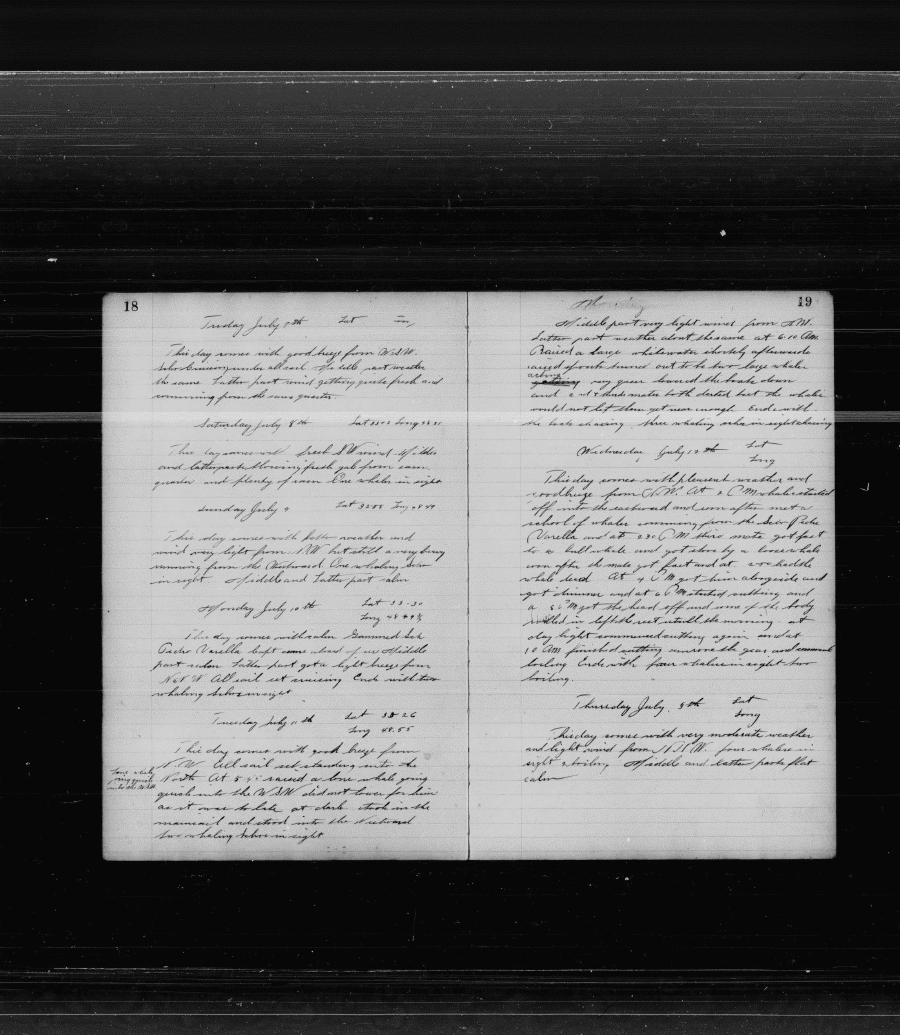 18
Friday July 7th Lat
This day comes with good breeze from WSW.
Schr Cruising under all sail Middle part weather
the same Latter part wind getting quite fresh and
comming from the same quarter
Saturday July 8th Lat Long
This day comes with fresh SW wind Middle
and latter part blowing fresh gale from same
quarter and plenty of rain One whaler in sight
Sunday July 9 Lat Long 48 49
This day comes with better weather and
wind very light from NW but still a very
running from the Westward One whaling Schr
in sight Middle and Latter part calm
Monday July 10th Lat 33-30
Long 48 49½
This day comes with calm Gammed Sch
Pedro Varella Left some ahead of us Middle
part calm Latter part got a light breeze from
NNW All sail set cruising Ends with two
whaling Schrs in sight
Tuesday July 11th Lat 33 26
Long 48.55
This day comes with good breeze from
N.W. All sail set standing into the
North At 5 raised a lone whale going
quick into the WSW did not lower for him
as it was to late at dark took in the
mainsail and stood into the Westward
two whaling Schrs in sight
Lone whale
going quick
into the WSW
19
Middle part very light wind from NW.
Latter part weather about the same at 6-10 AM
Raised a large whitewater shortly afterwards
raised spouts turned out to be two large whales
acting
very queer lowered the boats down
and 2nd & third mates both darted but the whales
would not let them get near enough Ends with
the boats chasing three whaling schrs in sight chasing
Wednesday July 12th Lat
Long
This day comes with pleasant weather and
good breeze from N.W. At 2 PM whales started
off into the eastward and soon after met a
school of whales comming from the Schr Pedro
Varella and at 2 30 PM third mate got fast
to a bull whale and got stove by a loose whale
soon after the mate got fast and at had the
whale dead At 4 PM got him alongside and
got dinner and at 6 PM started cutting and
a 8 PM got the head off and some of the body
rolled in left the rest untill the morning at
day light commenced cutting again and at
10 AM finished cutting and commenced
boiling Ends with four whalers in sight two
boiling.
Thursday July. Lat
Long
This day comes with very moderate weather
and light wind from N.W. four whalers in
sight 2 boiling Middle and latter parts flat
calm